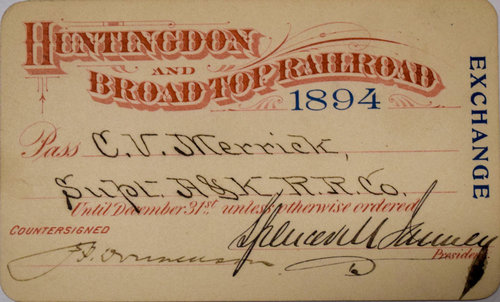 HUNTINGDON
AND
BROAD TOP RAILROAD
1894
EXCHANGE
Pass C. V. Merrick,
Supt. A&K. R.R. Co.
Until December 31st unless otherwise ordered
COUNTERSIGNED
Spencer M Janney
President